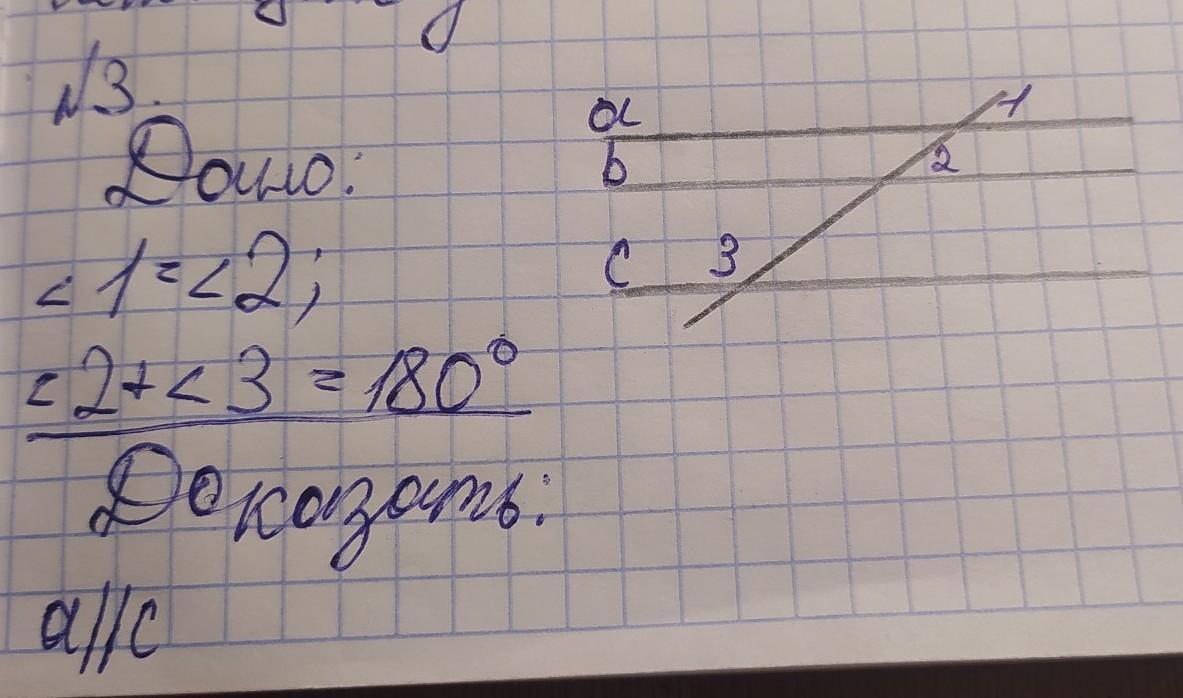 №3.
Дано:
<1=<2;
<2+<3=180°
Доказать:
a//c
a
b
c
1
2
3